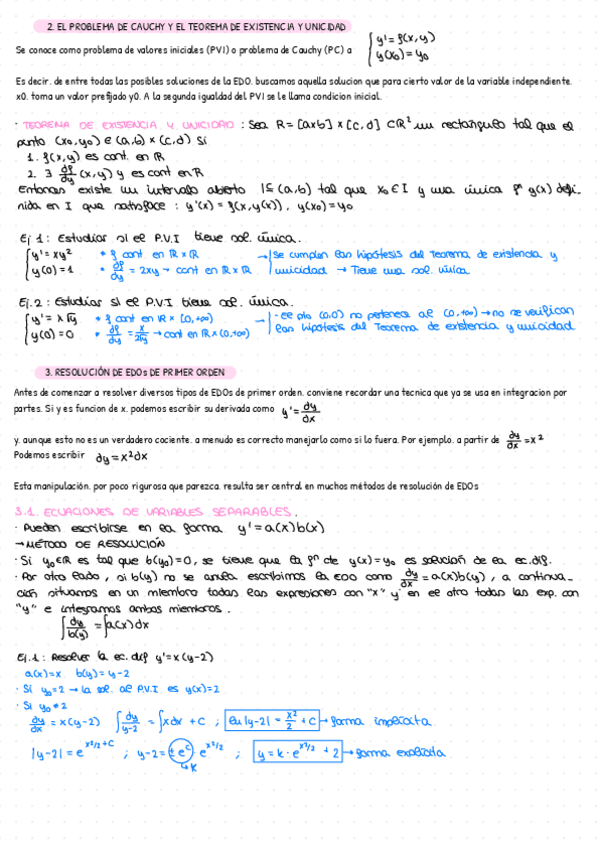 2. EL PROBLEMA DE CAUCHY Y EL TEOREMA DE EXISTENCIA Y UNICIDAD
Se conoce como problema de valores iniciales (PVI) o problema de Cauchy (PC) a { y' = f(x,y)
y(x₀) = y₀
Es decir. de entre todas las posibles soluciones de la EDO. buscamos aquella solucion que para cierto valor de la variable independiente.
x0. toma un valor prefijado y0. A la segunda igualdad del PVI se le llama condicion inicial.
· TEOREMA DE EXISTENCIA Y UNICIDAD : Sea R = [axb] x [c,d] ⊂ ℝ² un rectángulo tal que el
punto (x₀,y₀) ∈ (a,b) x (c,d) Si
1. f(x,y) es cont. en R
2. ∃ df/dy (x,y) y es cont en R
Entonces existe un intervalo abierto I ⊆ (a,b) tal que x₀ ∈ I y una única fⁿ y(x) defi-
nida en I que satisface : y'(x) = f(x,y(x)), y(x₀) = y₀
Ej 1: Estudiar si el P.V.I tiene sol. única.
{ y' = xy² * f cont en ℝ x ℝ → Se cumplen las hipótesis del Teorema de existencia y
y(0) = 1 * df/dy = 2xy → cont en ℝ x ℝ unicidad → Tiene una sol. única
Ej. 2: Estudiar si el P.V.I tiene sol. única.
{ y' = x√y * f cont en ℝ x [0,+∞) → · el pto (0,0) no pertenece al (0,+∞) → no se verifican
y(0) = 0 * df/dy = x/2√y → cont en ℝ x (0,+∞) las hipótesis del Teorema de existencia y unicidad
3. RESOLUCIÓN DE EDOs DE PRIMER ORDEN
Antes de comenzar a resolver diversos tipos de EDOs de primer orden. conviene recordar una tecnica que ya se usa en integracion por
partes. Si y es funcion de x. podemos escribir su derivada como y' = dy/dx
y. aunque esto no es un verdadero cociente. a menudo es correcto manejarlo como si lo fuera. Por ejemplo. a partir de dy/dx = x²
Podemos escribir dy = x²dx
Esta manipulación. por poco rigurosa que parezca. resulta ser central en muchos métodos de resolución de EDOs
3.1. ECUACIONES DE VARIABLES SEPARABLES.
· Pueden escribirse en la forma y' = a(x)b(x)
→ MÉTODO DE RESOLUCIÓN
· Si y₀ ∈ ℝ es tal que b(y₀) = 0, se tiene que la fⁿ de y(x) = y₀ es solución de la ec.dif.
· Por otro lado, si b(y) no se anula escribimos la EDO como dy/dx = a(x)b(y), a continua-
ción situamos en un miembro todas las expresiones con "x" y en el otro todas las exp. con
"y" e integramos ambos miembros.
∫ dy/b(y) = ∫a(x)dx
Ej. 1: Resolver la ec.dif y' = x(y-2)
a(x) = x b(y) = y-2
· Si y₀ = 2 → la sol. al P.V.I es y(x) = 2
· Si y₀ ≠ 2
dy/dx = x(y-2) ∫ dy/y-2 = ∫xdx + C ; ln|y-2| = x²/2 + C → forma implícita
|y-2| = e^(x²/2 + C) ; y-2 = ±e^C e^(x²/2) ; y = k · e^(x²/2) + 2 → forma explícita
↳ K